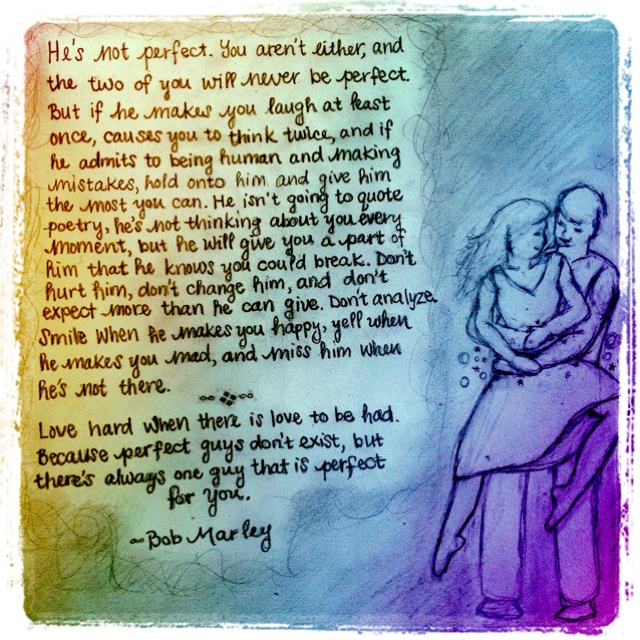 He's not perfect. You aren't either, and
the two of you will never be perfect.
But if he makes you laugh at least
once, causes you to think twice, and if
he admits to being human and making
mistakes, hold onto him and give him
the most you can. He isn't going to quote
poetry, he's not thinking about you every
moment, but he will give you a part of
him that he knows you could break. Don't
hurt him, don't change him, and don't
expect more than he can give. Don't analyze.
Smile when he makes you happy, yell when
he makes you mad, and miss him when
he's not there.
Love hard when there is love to be had.
Because perfect guys don't exist, but
there's always one guy that is perfect
for you.
~Bob Marley